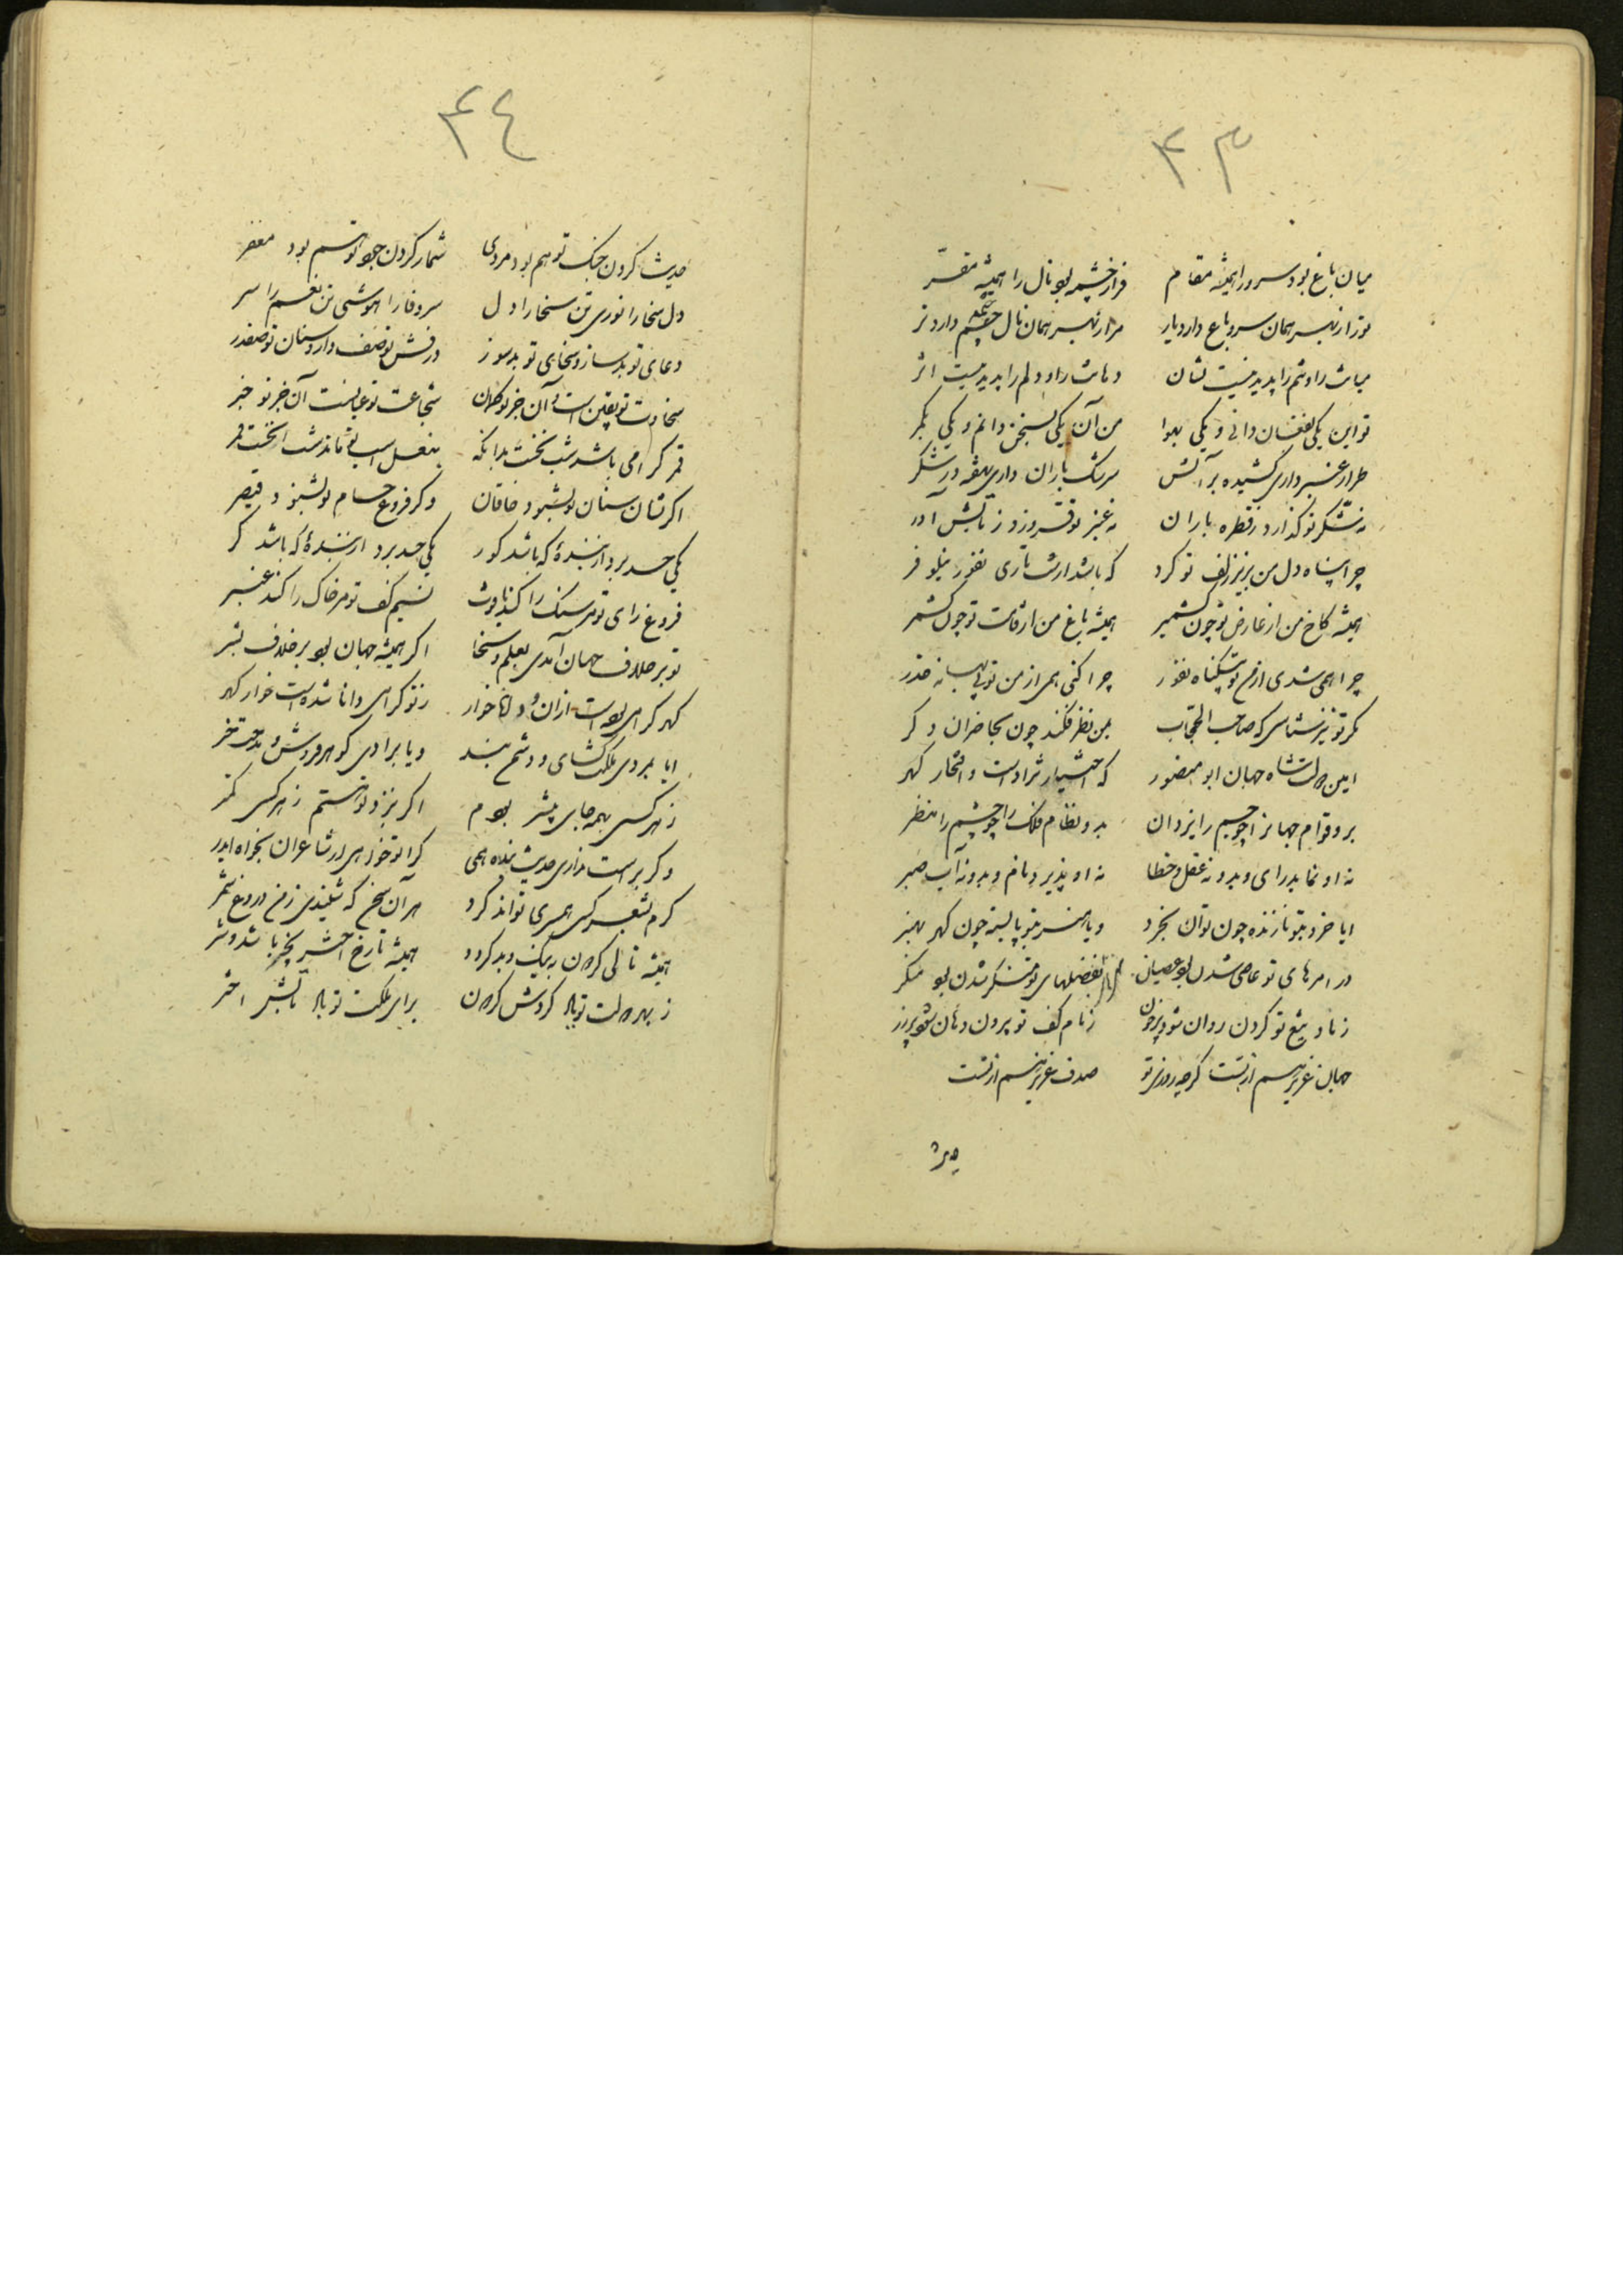 ۴۳
میان باغ بود سرو را همیشه مقام فراز چشمه بود نال را همیشه مقر
تو از نهیب همان سرو باغ دارد یار مرا نهیب همان نال چشمه دارد تر
میانت را و تنم را پدید نیست نشان دهانت را و دلم را پدید نیست اثر
تو این یکی بفغان دانی و یکی بهوا من آن یکی بسخن دانم و یکی بکمر
طراز عنبر داری کشیده بر آتش سرشک باران داری نهفته در شکر
نه شکر تو گدازد ز قطره باران نه عنبر تو فروزد ز تابش آذر
چرا پناه دل من بزیر زلف تو کرد که باشد از شب تاری نفور نیلوفر
همیشه کاخ من از عارض تو چون کشمیر همیشه باغ من از قامت تو چون کشمر
چرا همی شدی از من تو بیگناه نفور چرا کنی همی از من تو بی بهانه حذر
مگر تو نیز شناسی که صاحب الحجاب بمن نظر فکند چون بحاضران دگر
امین دولت شاه جهان ابو منصور که اختیار نژاد است و افتخار گهر
بر و قوام جهان را چو جسم را بروان بدو نظام فلک را چو چشم را بنظر
نه او نماید رای و بدو نه عقل خطا نه او پذیرد نام و بدو نه آب صبر
ایا خرد بتو نازنده چون توان بخرد و یا هنر بتو پاینده چون گهر بهنر
در امرهای تو عاصی شدن بود عصیان بفضلهای تو منکر شدن بود منکر
ز باد تیغ تو گردن روان شود پر خون ز نام کف تو بیرون دهان شود پر زر
جهان عزیز هم از تست گر چه روزی تو صدف عزیز هم از تست
۴۴
حدیث کردن جنگ تو هم بود مردی شمار کردن جود تو هم بود مفخر
دل سخا را نوری تن سخا را دل سر وفا را هوشی تن نعم را سر
دعای تو بد ساز و سخای تو بد سوز درفش تو صف دار و سنان تو صفدر
سخاوت تو یقین است و آن جز تو گمان شجاعت تو عیانست آن جز تو خبر
قمر گرامی باشد شب نخست بدانکه بنعل اسب تو ماند شب نخست قمر
اگر نشان سنان تو بشنود خاقان و گر فروغ حسام تو بشنود قیصر
یکی حسد برد از بنده که باشد کور یکی حسد برد از بنده که باشد کر
فروغ رای تو مر سنگ را کند یاقوت نسیم کف تو مر خاک را کند عنبر
تو بر خلاف جهان آمدی بعلم و سخا اگر همیشه جهان بود بر خلاف بشر
گهر گرامی بوده است ازان و دانا خوار ز تو گرامی دانا شده است خوار گهر
ایا بمردی ملکت گشای و دشمن بند و یا برادی گوهر فروش و مدحت خر
ز هر کسی بهمه جای پیشتر بودم اگر بنزد تو هستم ز هر کسی کمتر
و گر براست نداری حدیث بنده همی کرا تو خواهی از شاعران بخواه ایدر
گرم بشعر کسی همسری تواند کرد هر آن سخن که شنیدی ز من دروغ شمر
همیشه تا که کردن به نیک و بد گردد همیشه تا رخ اختر بخیر باشد و شر
ز بهر دولت تو باد گردش گردون برای ملکت تو باد تابش اختر